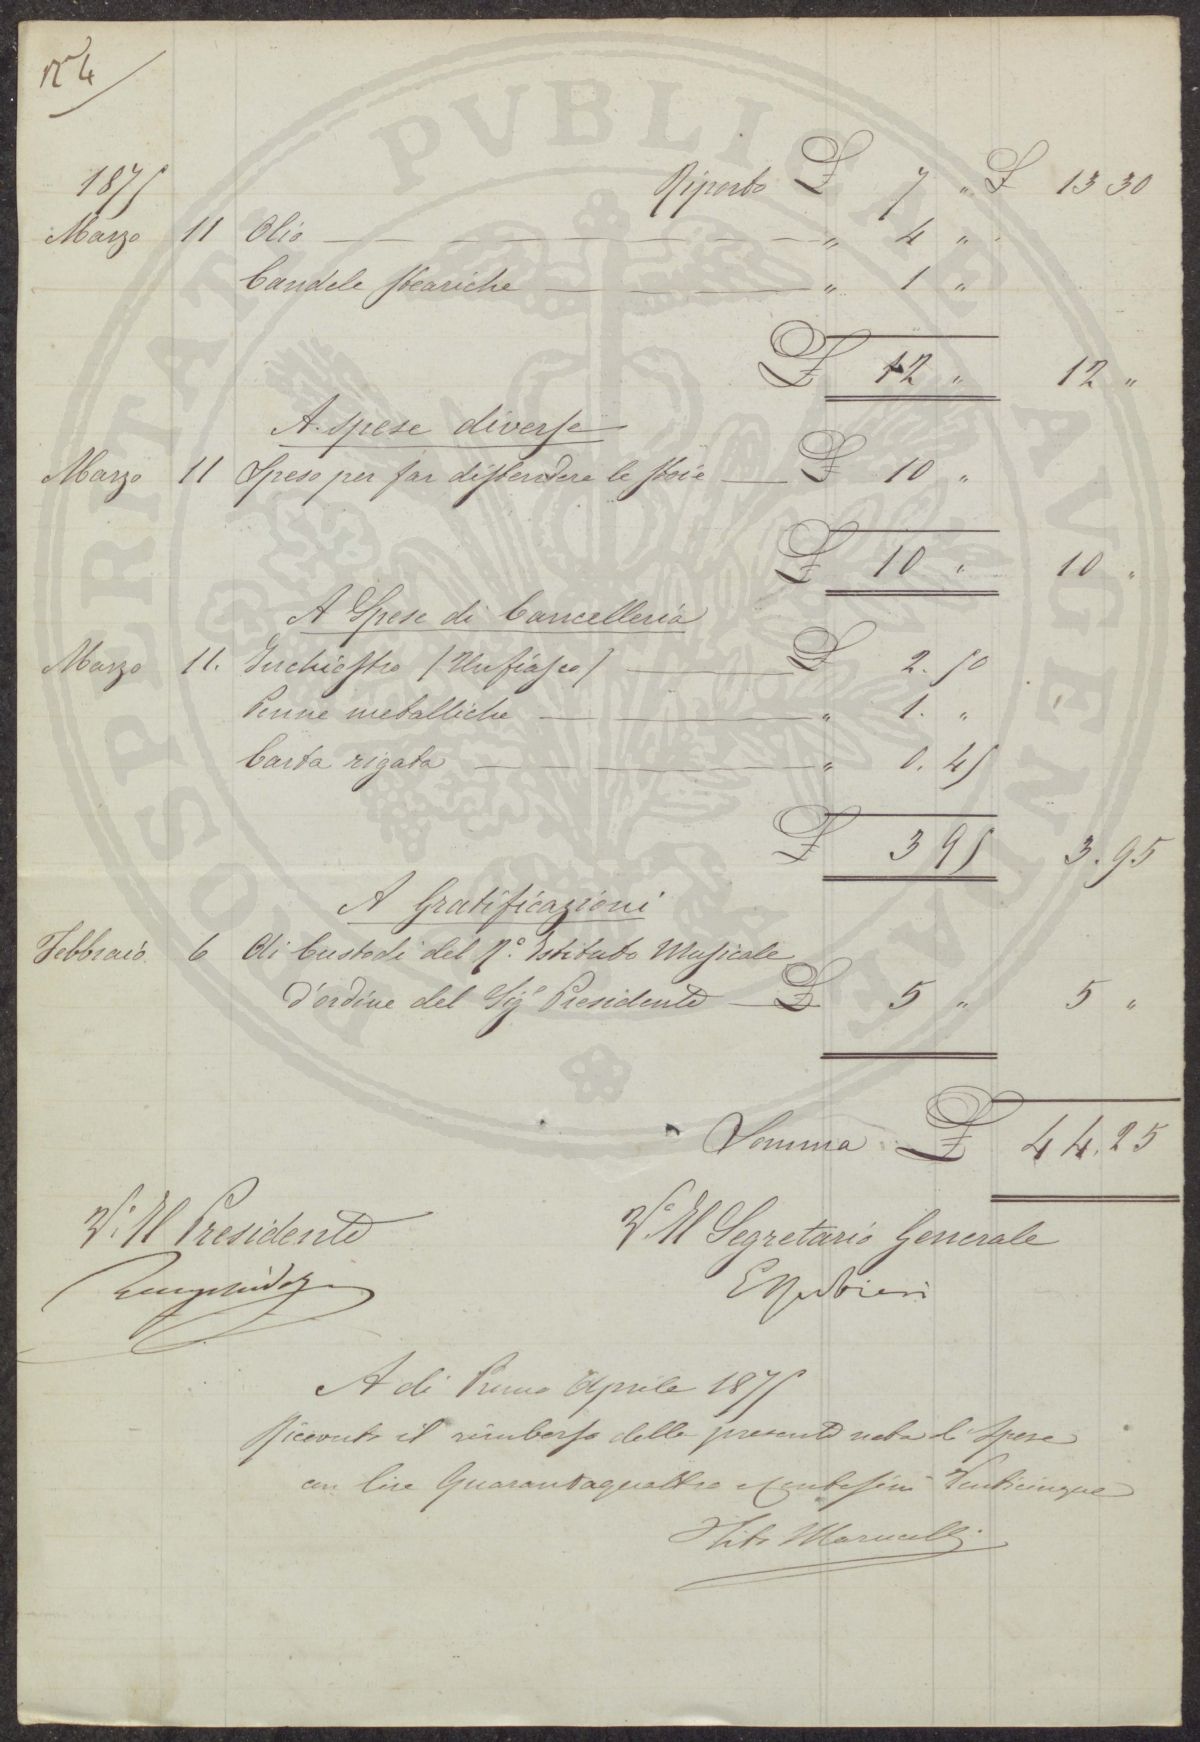 N° 4
1875 Riporto £ 7 " £ 13 30
Marzo 11 Olio " 4 "
Candele steariche " 1 "
£ 12 " 12 "
A spese diverse
Marzo 11 Speso per far distendere le stoie £ 10 "
£ 10 " 10 "
A Spese di Cancelleria
Marzo 11. Inchiostro (Un fiasco) £ 2.50
Penne metalliche " 1. "
Carta rigata " 0.45
£ 3 95 3.95
A Gratificazioni
Febbraio 6 Ai Custodi del R°. Istituto Musicale
d'ordine del Sig. Presidente £ 5 " 5 "
Somma £ 44.25
V°. Il Presidente V°. Il Segretario Generale
A dì Primo Aprile 1875
Ricevuto il rimborso della presente nota di spese
con lire Quarantaquattro e centesimi Venticinque
Tito Marucelli
PROSPERITATI PVBLICAE AVGENDAE